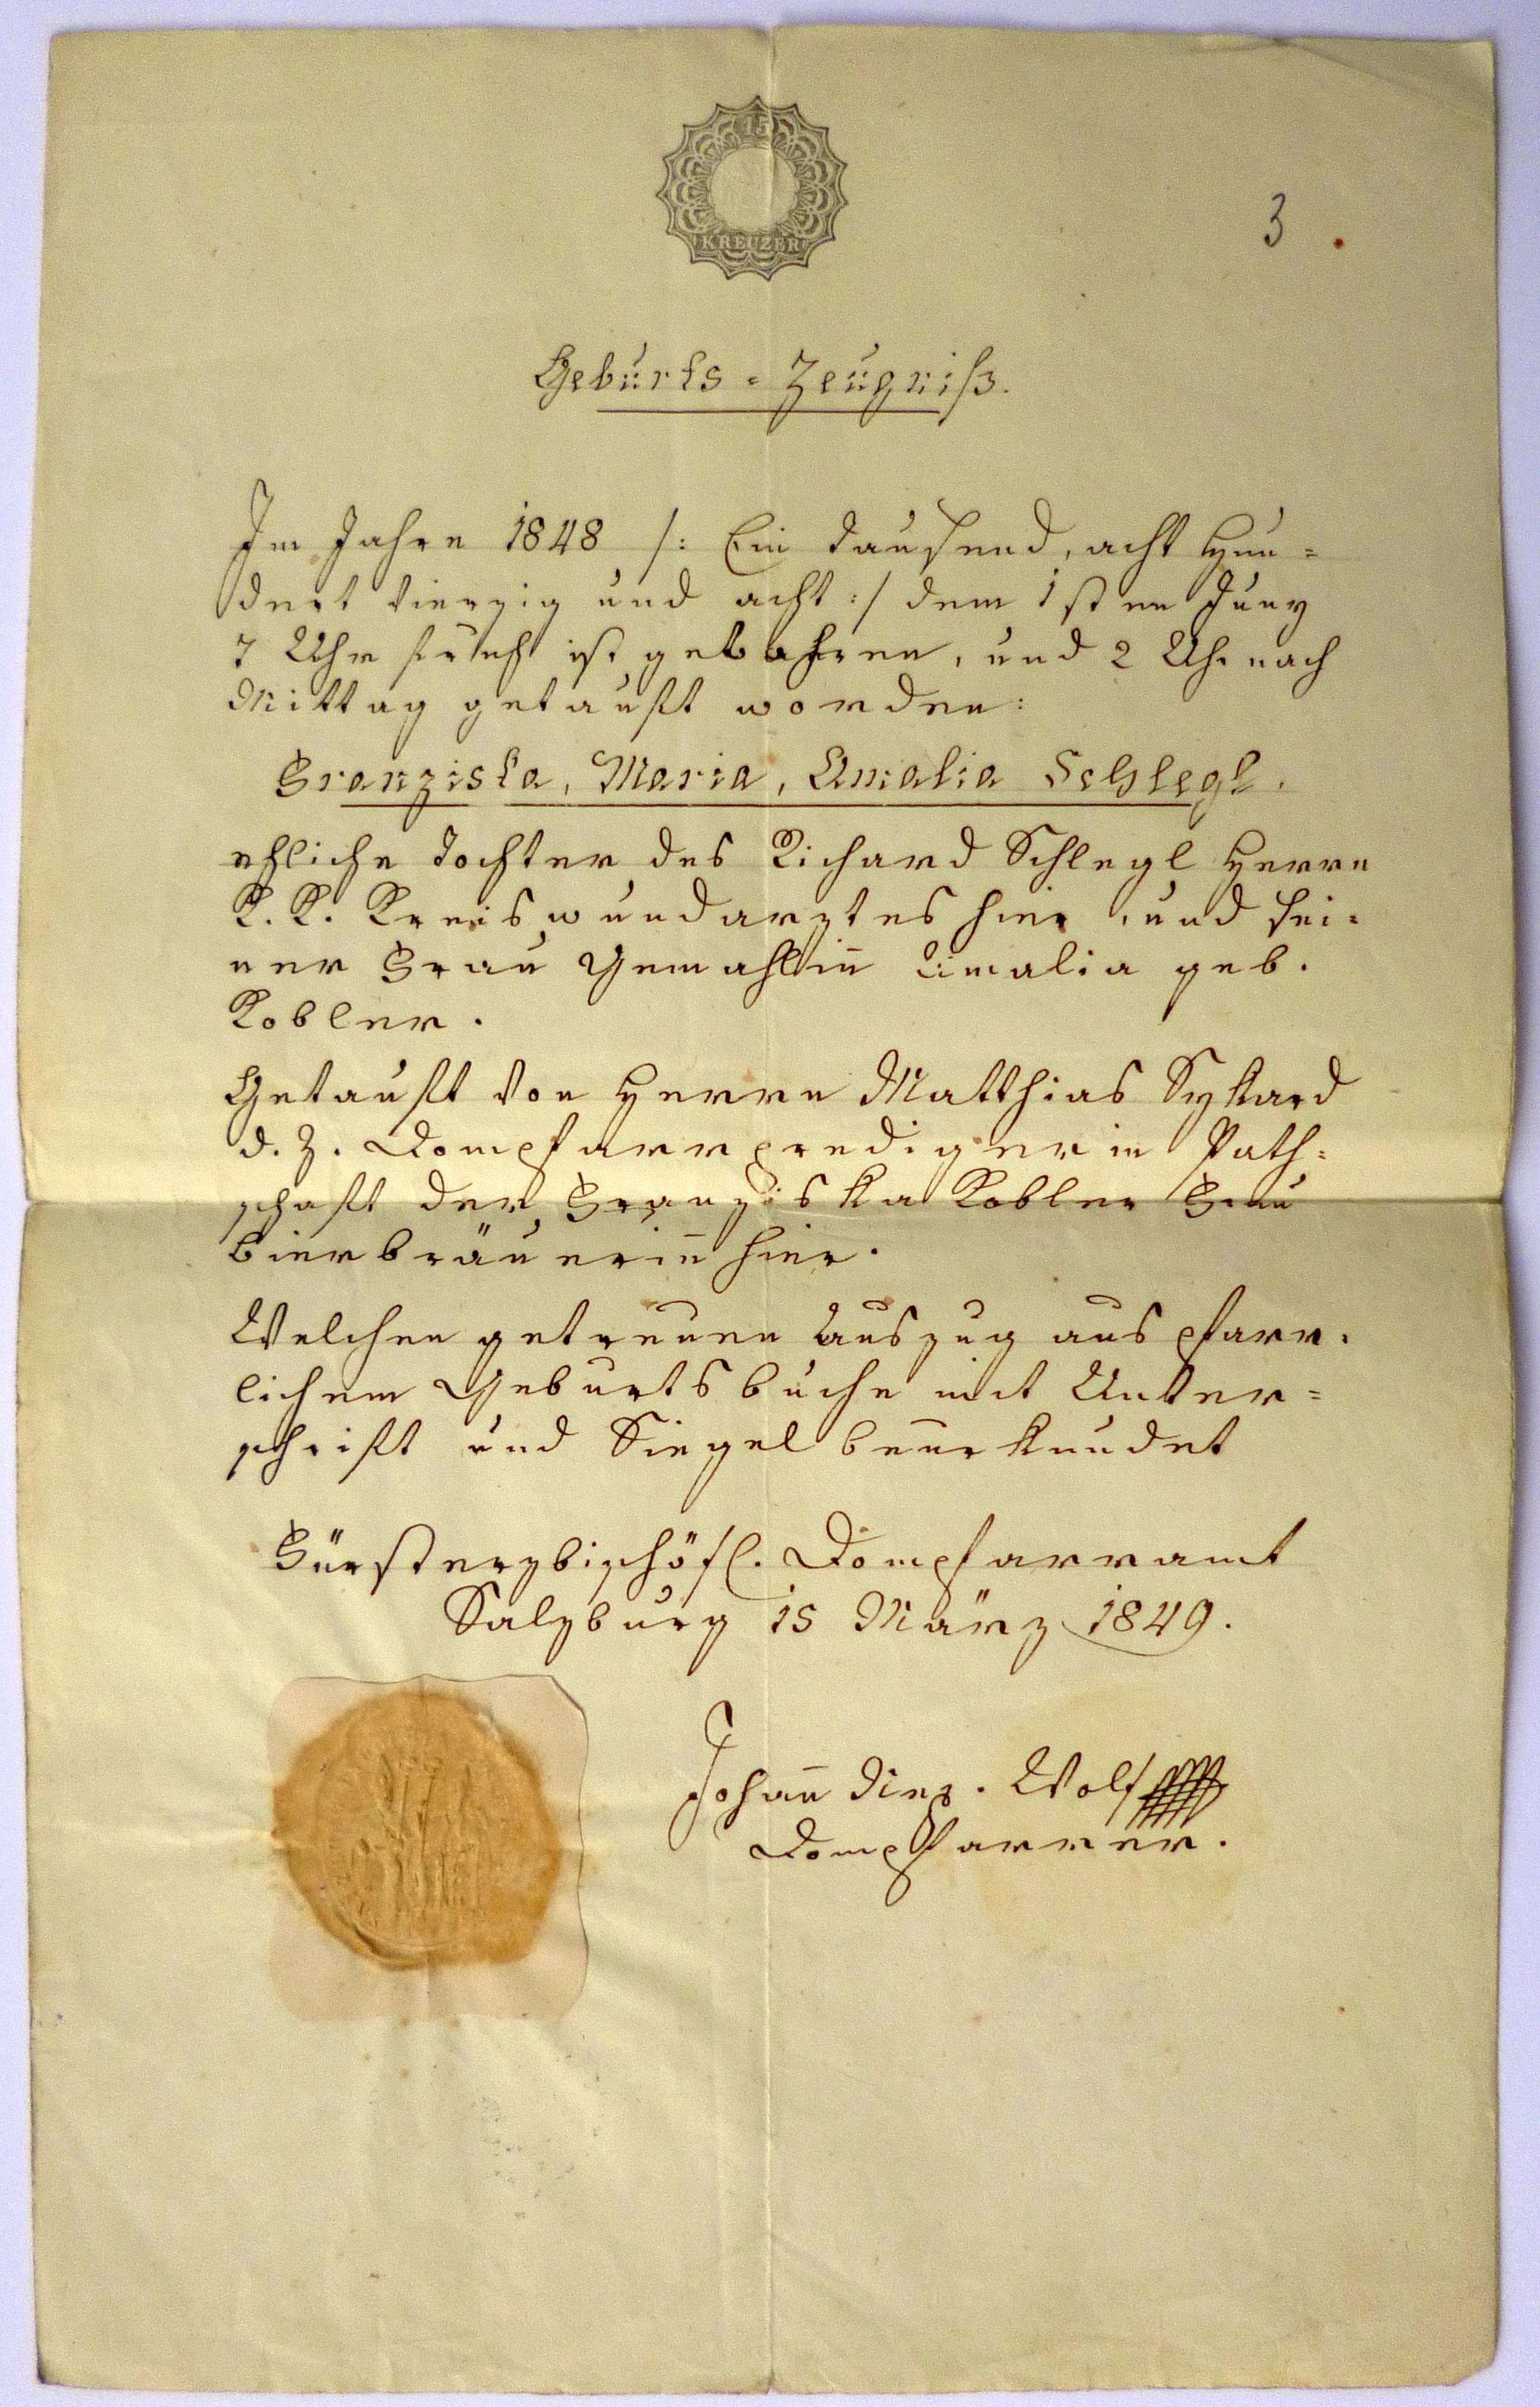 15
KREUZER
3.
Geburts = Zeugniß.
Im Jahre 1848 /: Ein tausend, acht Hun=
dert vierzig und acht :/ dem 1sten Juny
7 Uhr früh ist gebohren, und 2 Uhr nach
Mittag getauft worden:
Franziska, Maria, Amalia Schlegl.
ehliche Tochter des Richard Schlegl Herrn
K. K. Kreiswundarztes hier, und sei=
ner Frau Gemahlin̅ Amalia geb.
Kobler.
Getauft von Herrn Matthias Sykard
d. Z. Dompfarrprediger in Path=
schaft der Franziska Kobler Frau
Bierbräuerin̅ hier.
Welchen getreuen Auszug aus pfarr=
lichem Geburtsbuche mit Unter=
schrift und Siegel beurkundet
Fürsterzbischöfl. Dompfarramt
Salzburg 15 März 1849.
Johan̅ Wolf
Dompfarrer.